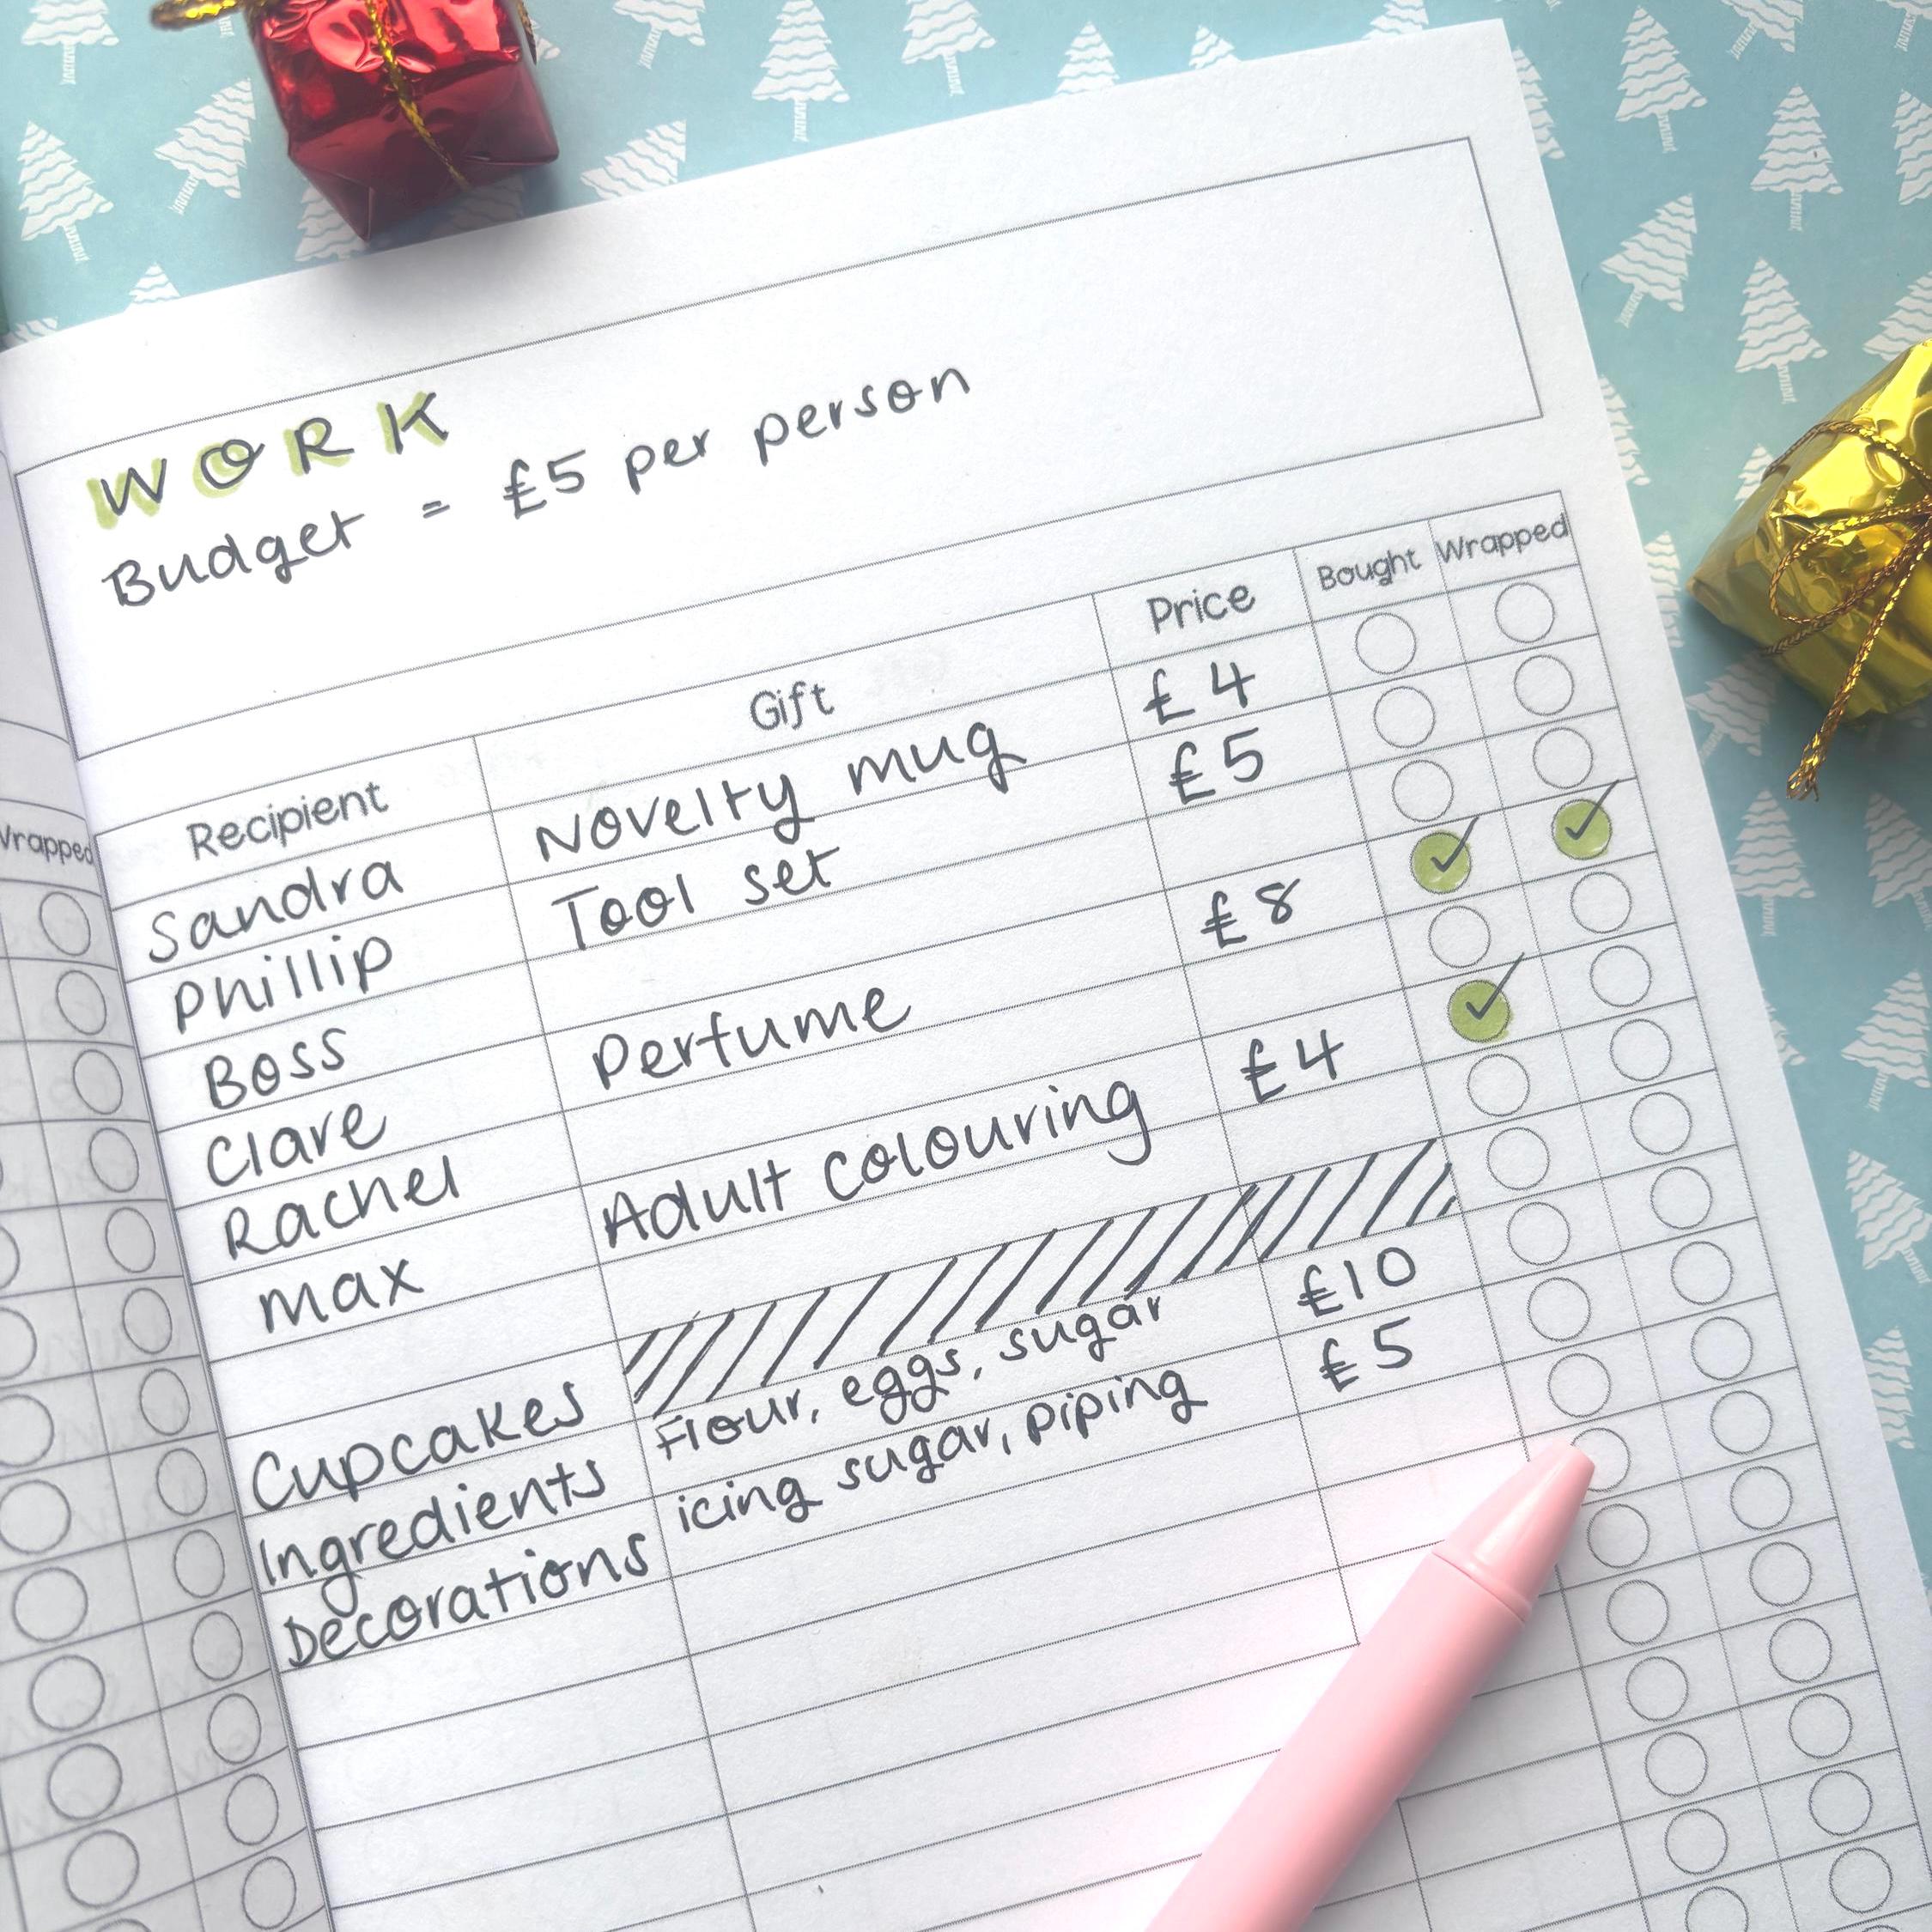 WORK
Budget = £5 per person
Recipient Gift Price Bought Wrapped
Sandra Novelty mug £4
Phillip Tool set £5
Boss
Clare Perfume £8 ✓ ✓
Rachel
Max Adult colouring £4 ✓
Cupcakes
Ingredients Flour, eggs, sugar £10
Decorations icing sugar, piping £5
Wrapped